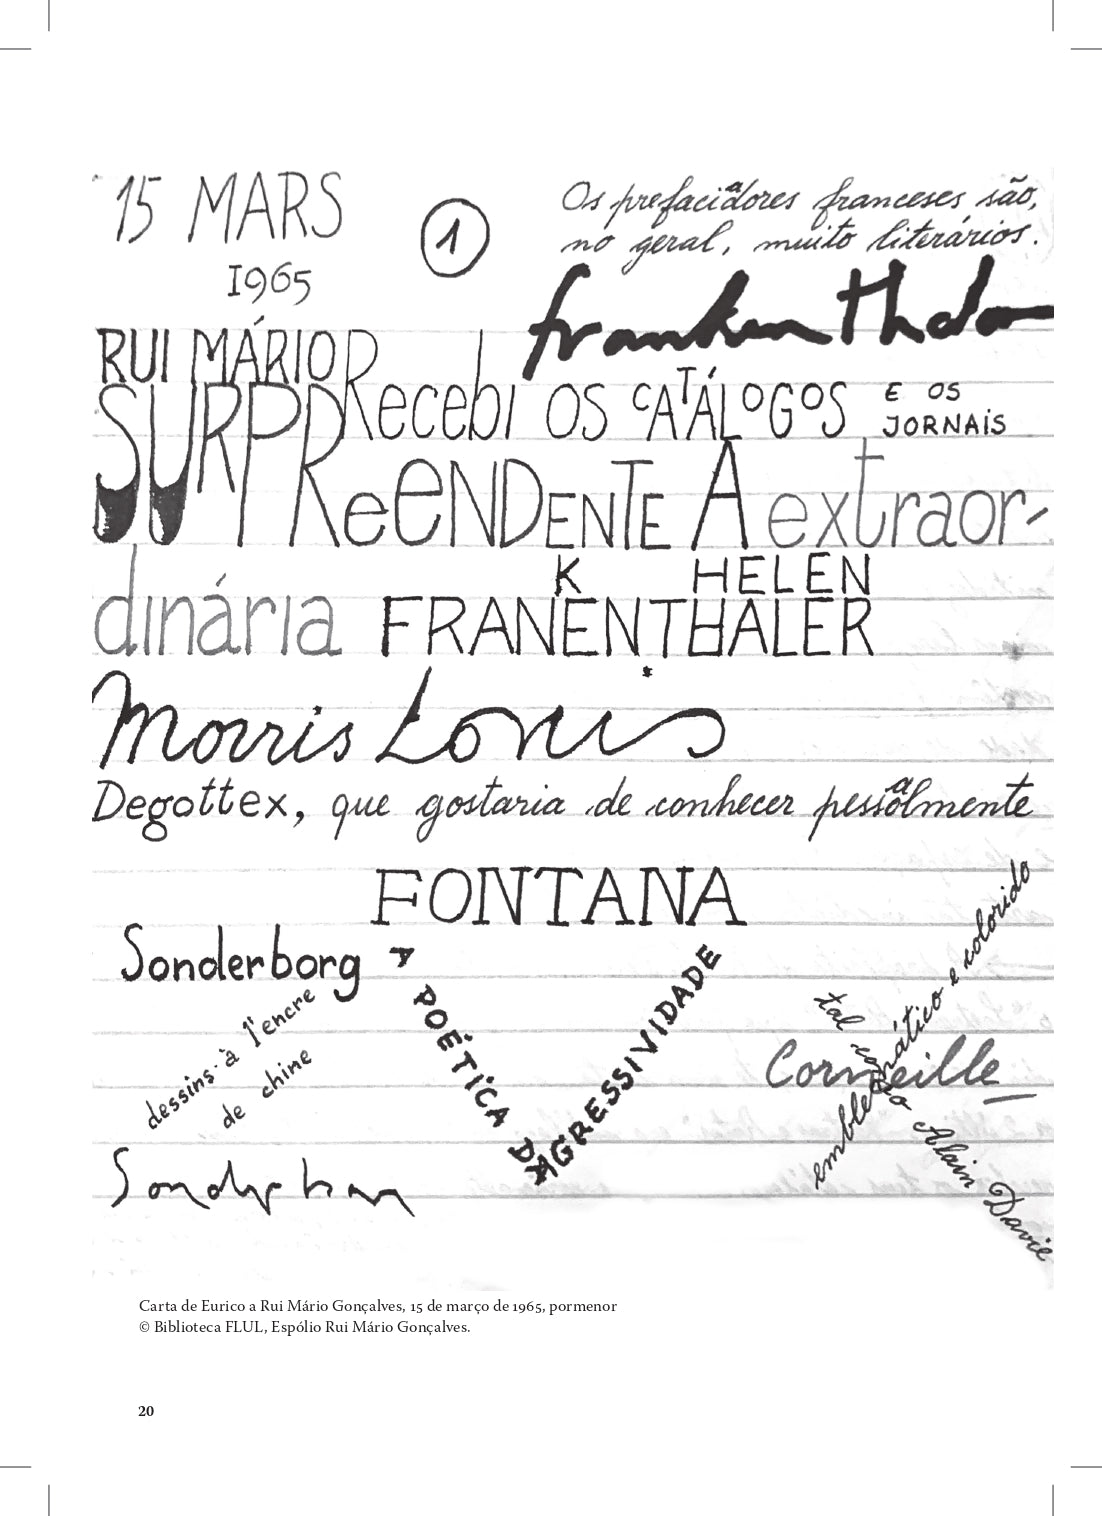 15 MARS
1965
1
Os prefaciadores franceses são,
no geral, muito literários.
frankenthaler
RUI MÁRIO
Recebi OS CATÁLOGOS E OS
JORNAIS
SURPReeNDENTE A extraor-
dinária FRANKENTHALER
HELEN
Morris Louis
Degottex, que gostaria de conhecer pessoalmente
FONTANA
Sonderborg
dessins à l'encre
de chine
A POÉTICA DA
AGRESSIVIDADE
Corneille
emblemático e colorido
tal como Alain Davie
Carta de Eurico a Rui Mário Gonçalves, 15 de março de 1965, pormenor
© Biblioteca FLUL, Espólio Rui Mário Gonçalves.
20